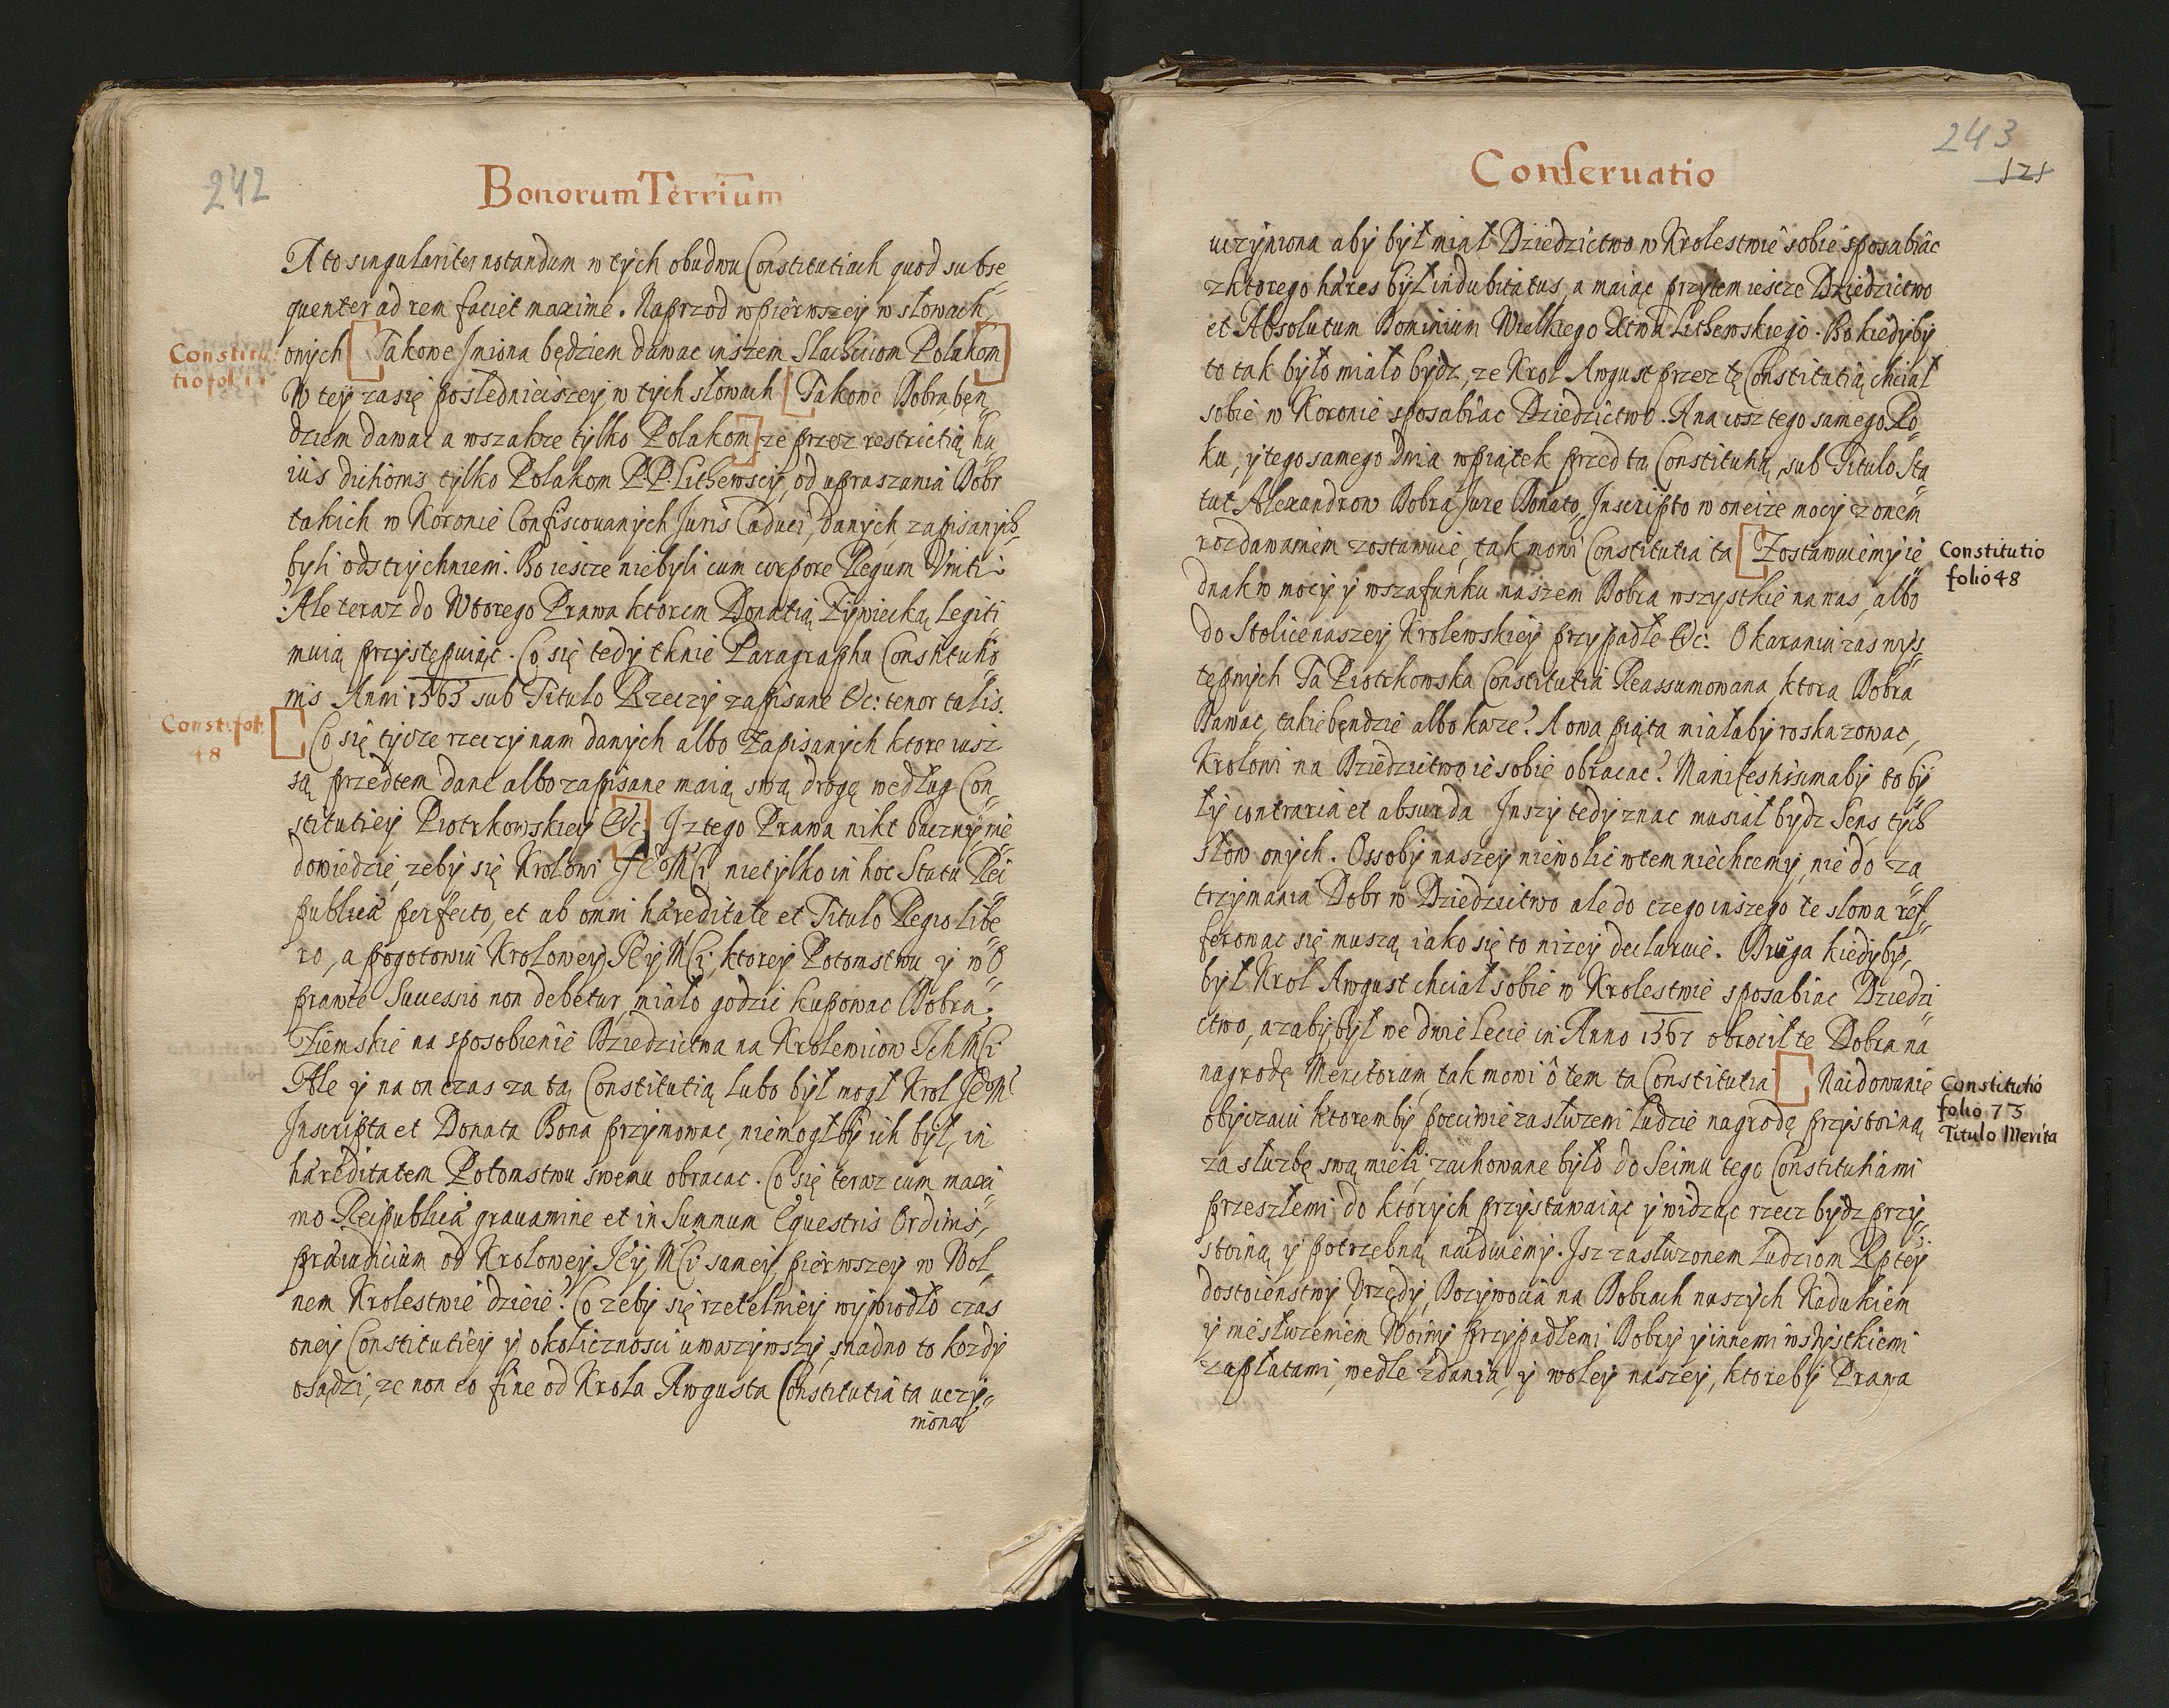 242
Bonorum Terrium
A to singulariter notandum w tych obudwu Constitutiach quod subse
quenter ad rem faciet maxime. Naprzod w pierwszey w słowach,
Constitu
tio fol:
onych [Takowe Jmiona będziem dawac inszem Slachciom Polakom]
W tey zasię poslednieiszey w tych słowach [Takowe Dobra bęn
dziem dawac a wszakze tylko Polakom] ze przez restrictią hu
ius dictionis tylko Polakom P.P. Lithewscy, od upraszania Dobr
takich w Koronie Confiscowanych Juris Caduci, danych, zapisanych
byli odstrychnieni. Bo iescze niebyli cum corpore Regum Vniti
Ale teraz do Wtorego Prawa ktorem Donatią Zywiecką Legiti
muią przystępuiąc. Co się tedy tknie Paragraphu Constitutio
nis Anni 1563 sub Titulo Rzeczy zapisane &c: tenor talis.
Consti: fol:
48
[Co się tycze rzeczy nam danych albo Zapisanych ktore iusz
są przedtem dane albo zapisane maią swą drogę według Con
stitutiey Piotrkowskiey &c] Jz tego Prawa nikt baczny nie
dowiedzie, zeby się Krolowi Je̊ M̊ci nietylko in hoc Statu Rei
publicæ perfecto, et ab omni hæreditate et Titulo Regio libe
ro, a pogotowiu Krolowey Jey Mci, ktorey Potomstwu y w O
prawie Successio non debetur, miało godzic kupowac Dobra
Ziemskie na sposobienie Dziedzictwa na Krolewicow Jch Mci
Ale y na on czas za tą Constitutią lubo był mogł Krol Je̊ M̊
Jnscripta et Donata Bona przymowac, niemogłby ich był, in
hæreditatem Potomstwu swemu obracac. Co się teraz cum maxi
mo Reipublicæ grauamine et in Summum Equestris Ordinis,
præiudicium od Krolowey Jey Mci samey pierwszey w Wol
nem Krolestwie dzieie. Co zeby się rzetelniey wywiodło czas
oney Constitutiey y okolicznosci uwazywszy, snadno to kozdy
osądzi, ze non eo fine od Krola Awgusta Constitutia ta uczy
niona
243
521
Conseruatio
uczyniona aby był miał Dziedzictwo w Krolestwie sobie sposabiac
z ktorego hæres był indubitatus, a maiąc przytem iescze Dziedzictwo
et Absolutum Dominium Wielkiego Xtwa Lithewskiego. Bo kiedyby
to tak było miało bydz, ze Krol Awgust przez tę Constitutią chciał
sobie w Koronie sposabiac Dziedzictwo. A na cosz tego samego Ro
ku, y tego samego dnia w piątek przed tą Constitutią, sub Titulo Sta
tut Alexandrow Dobra Jure Donato, Jnscripto w oneize mocy z onem
rozdawaniem zostawuie, tak mowi Constitutia ta [Zostawuiemy ie
Constitutio
folio 48
dnak w mocy y w szafunku naszem Dobra wszystkie na nas, albo
do Stolice naszey Krolewskiey przypadłe &c: O karaniu zas wys
tępnych Ta Piotrkowska Constitutia Reassumowana, ktora Dobra
Dawac, takie będzie albo kaze? A owa piąta miałaby roskazowac,
Krolowi na Dziedzictwo ie sobie obracac? Manifestissimaby to by
ły contraria et absurda Jnszy tedy znac musiał bydz Sens tych
słow onych. Ossoby naszey niewolic w tem niechcemy, nie do za
trzymania Dobr w Dziedzictwo ale do czego inszego te slowa ref
ferowac się muszą, iako się to nizey declaruie. Druga kiedyby,
był Krol Awgust chciał sobie w Krolestwie sposabiac Dziedzi
ctwo, a zaby był we dwie lecie in Anno 1567 obrocił te Dobra na
nagrodę Meritorum, tak mowi o tem ta Constitutia [Naidowanie
Constitutio
folio 73
Titulo Merita
obyczaiu ktoremby poczciwie zasłuzeni ludzie nagrodę przystoiną
za słuzbę swą mieli, zachowane było do Seimu tego Constitutiami
przeszłemi, do ktorych przystawaiąc y widząc rzecz bydz przy
stoiną y potrzebną naiduiemy. Jsz zasłuzonem Ludziom Rptey
dostoienstwy, Vrzędy, Dozywocia na Dobrach naszych Kadukiem
y niesłuzeniem Woiny przypadłemi Dobry y innemi wszystkiemi
zapłatami, wedle zdania, y woley naszey, ktoreby Prawa